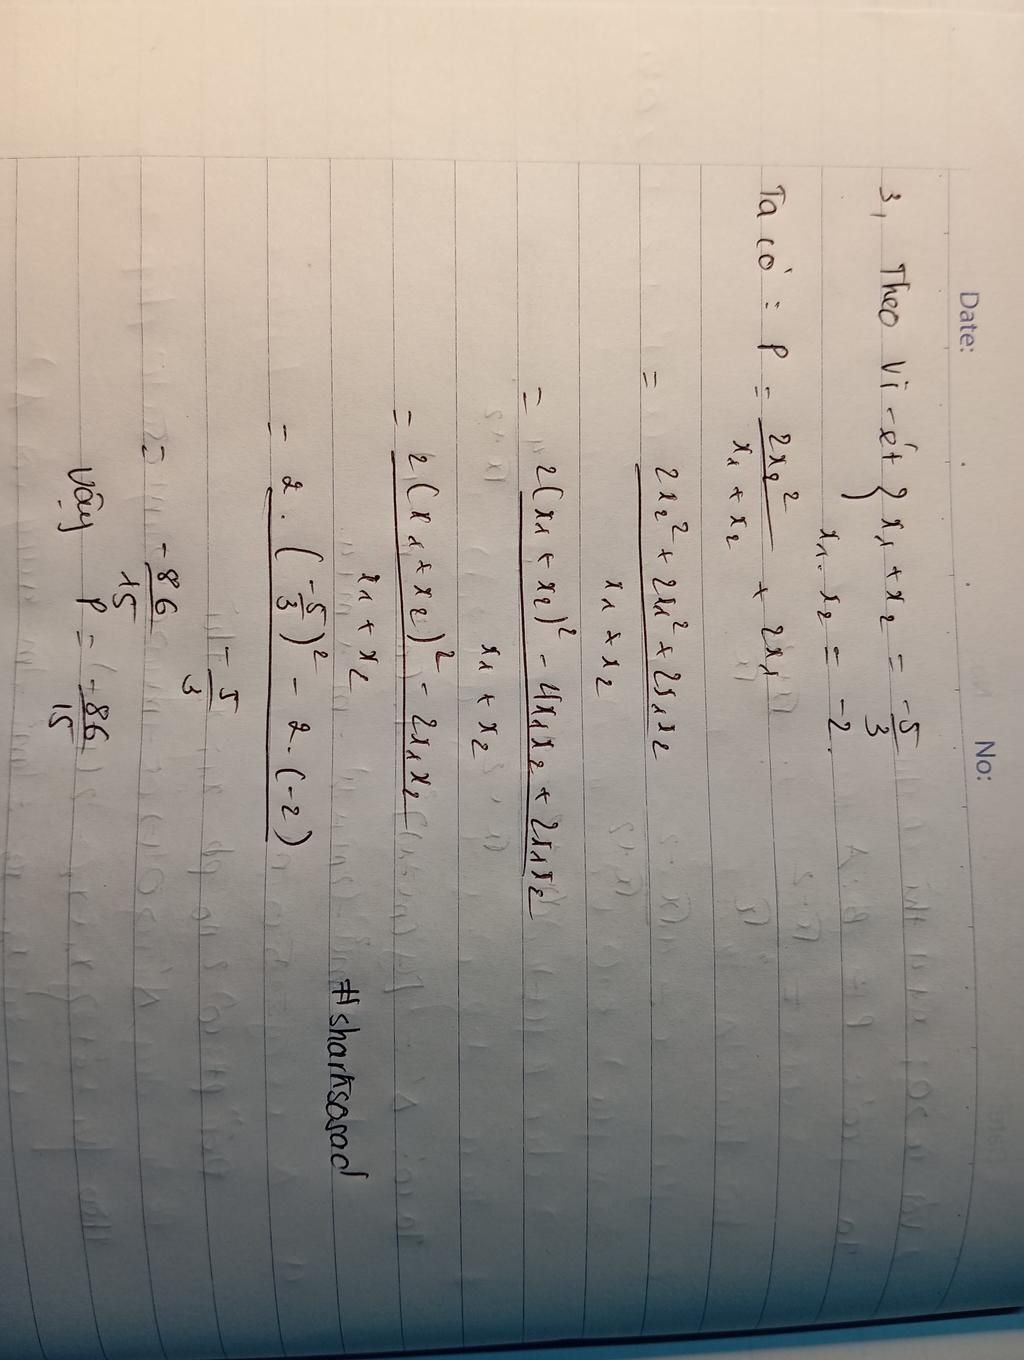 Date: No:
3, Theo Vi-ét { x₁ + x₂ = -5/3
x₁ . x₂ = -2
Ta có : P = 2x₂²/(x₁ + x₂) + 2x₁
= (2x₂² + 2x₁² + 2x₁x₂)/(x₁ + x₂)
= (2(x₁ + x₂)² - 4x₁x₂ + 2x₁x₂)/(x₁ + x₂)
= (2(x₁ + x₂)² - 2x₁x₂)/(x₁ + x₂)
#sharksosad
= (2 . (-5/3)² - 2 . (-2))/(-5/3)
= -86/15
Vậy P = -86/15